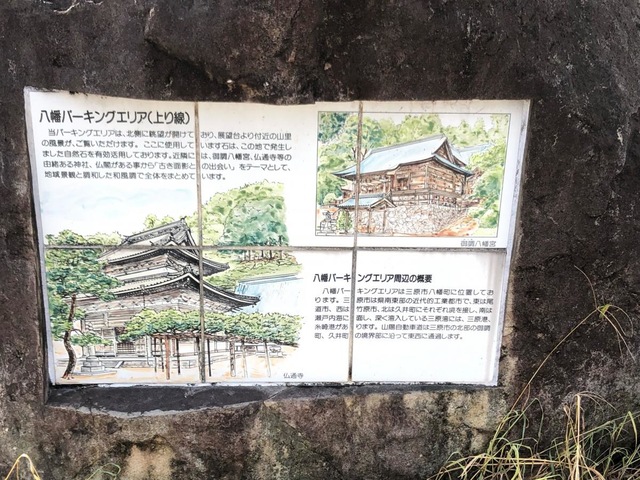 八幡パーキングエリア(上り線)
当パーキングエリアは、北側に眺望が開けており、展望台より付近の山里
の風景が、ご覧いただけます。ここに使用しています石は、この地で発生し
ました自然石を有効活用しております。近隣には、御調八幡宮、仏通寺等の
由緒ある神社、仏閣がある事から「古き面影との出会い」をテーマとして、
地域景観と調和した和風調で全体をまとめています。
御調八幡宮
八幡パーキングエリア周辺の概要
八幡パーキングエリアは三原市八幡町に位置してお
ります。三原市は県南東部の近代的工業都市で、東は尾
道市、西は竹原市、北は久井町にそれぞれ境を接し、南は
瀬戸内海に面し、深く湾入している三原湾には、三原港、
糸崎港があります。山陽自動車道は三原市の北部の御調
町、久井町の境界部に沿って東西に通過します。
仏通寺